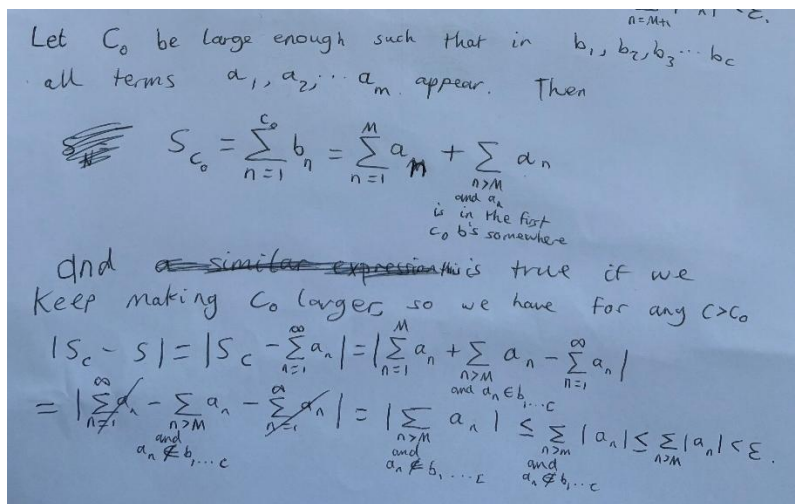 ∑_{n=M+1} |a_n| < ε.
Let C₀ be large enough such that in b₁, b₂, b₃ ... b_c
all terms a₁, a₂, ... a_m appear. Then
S_{C₀} = ∑_{n=1}^{C₀} b_n = ∑_{n=1}^{M} a_n + ∑_{n>M and a_n is in the first C₀ b's somewhere} a_n
and this is true if we
keep making C₀ larger, so we have for any C>C₀
|S_C - S| = |S_C - ∑_{n=1}^{∞} a_n| = |∑_{n=1}^{M} a_n + ∑_{n>M and a_n ∈ b_{1,...c}} a_n - ∑_{n=1}^{∞} a_n|
= |∑_{n=1}^{∞} a_n - ∑_{n>M and a_n ∉ b_{1,...c}} a_n - ∑_{n=1}^{∞} a_n| = |∑_{n>M and a_n ∉ b_{1,...c}} a_n| ≤ ∑_{n>M and a_n ∉ b_{1,...c}} |a_n| ≤ ∑_{n>M} |a_n| < ε.